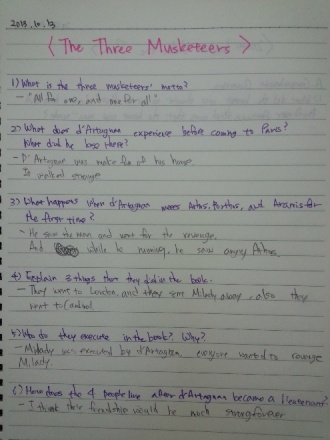 2018. 10. 13
< The Three Musketeers >
1) What is the three musketeers' motto?
- "All for one, and one for all"
2) What does d'Artagnan experience before coming to Paris?
What did he lose there?
- D'Artagnan was make fun of his horse
It walked
3) What happens when d'Artagnan meets Athos, Porthos, and Aramis for
the first time?
- He saw the man and went for the revenge.
And while he running, he saw angry Athos
4) Explain 3 things that they did in the book.
- They went to London, and they sent Milady away, also they
went to
5) Who do they execute in the book? Why?
- Milady was executed by d'Artagnan, everyone wanted to revenge
Milady.
6) How does the 4 people live after d'Artagnan became a lieutenant?
- I think their friendship would be much strong forever